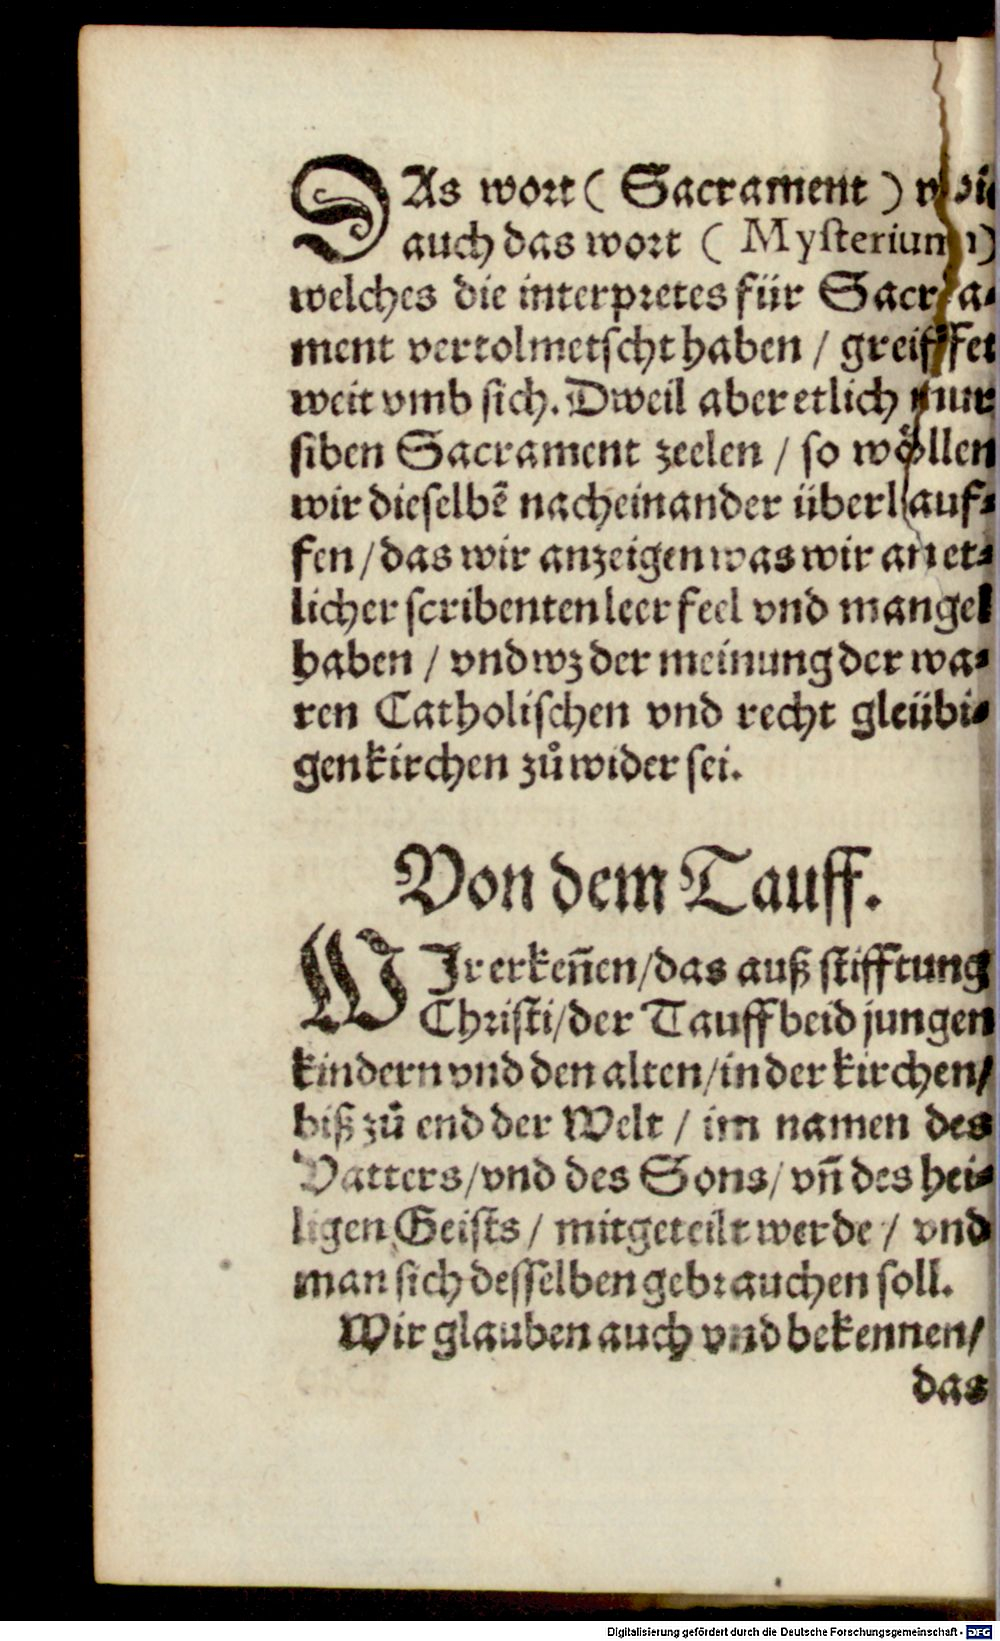 DAs wort ( Sacrament ) wie
auch das wort ( Mysterium )
welches die interpretes für Sacra⸗
ment vertolmetscht haben / greiffet
weit vmb sich. Dweil aber etlich nur
siben Sacrament zeelen / so wöllen
wir dieselbē nacheinander überlauf⸗
fen / das wir anzeigen was wir an et⸗
licher scribenten leer feel vnd mangel
haben / vnd wz der meinung der wa⸗
ren Catholischen vnd recht gleübi⸗
gen kirchen zů wider sei.
Von dem Tauff.
WIr erkeñen/das auß stifftung
Christi/der Tauff beid jungen
kindern vnd den alten/in der kirchen/
biß zů end der Welt / im namen des
Vatters/vnd des Sons/ vñ des hei⸗
ligen Geists / mitgeteilt werde / vnd
man sich desselben gebrauchen soll.
Wir glauben auch vnd bekennen/
das
Digitalisierung gefördert durch die Deutsche Forschungsgemeinschaft - DFG